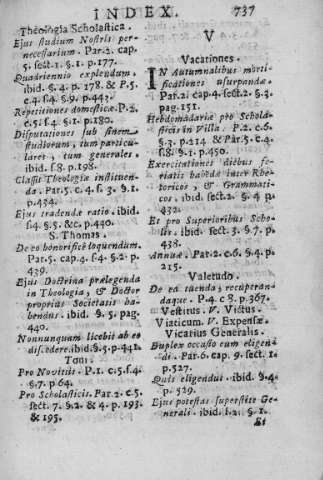 INDEX.
737
Theologia Scholastica.
Ejus studium Nostris per-
necessarium. Par. 2. cap.
5. sect. 1. §. 1. p. 177.
Quadriennio explendum.
ibid. §. 4. p. 178. & P. 5.
c. 4. s. 4. §. 9. p. 443.
Repetitiones domesticæ. P. 2.
c. 5. s. 4. §. 1. p. 180.
Disputationes sub finem
studiorum, tum particu-
lares, tum generales.
ibid. s. 8. p. 198.
Classis Theologiæ instituen-
da. Par. 5. c. 4. s. 3. §. 1.
p. 434.
Ejus tradendæ ratio. ibid.
s. 4. §. 5. &c. p. 440.
S. Thomas.
De eo honorificè loquendum.
Par. 5. cap. 4. s. 4. §. 2. p.
439.
Ejus Doctrina prælegenda
in Theologia, & Doctor
proprius Societatis ha-
bendus. ibid. §. 5. pag.
440.
Nonnunquam licebit ab eo
discedere. ibid. §. 5. p. 441.
Toni.
Pro Novitiis. P. 1. c. 5. s. 4.
§. 7. p. 64.
Pro Scholasticis. Par. 2. c. 5.
sect. 7. §. 2. & 4. p. 193.
& 195.
V
Vacationes.
IN Autumnalibus morti-
ficationes usurpandæ.
Par. 2. cap. 4. sect. 2. §. 3.
pag. 151.
Hebdomadariæ pro Schola-
sticis in Villa. P. 2. c. 6.
§. 3. p. 214 & Par. 5. c. 4.
s. 8. §. 1. p. 450.
Exercitationes diebus fe-
riatis habendæ inter Rhe-
toricos, & Grammati-
cos. ibid. sect. 2. §. 4 p.
432.
Et pro Superioribus Scho-
lis. ibid. sect. 3. §. 7. p.
438.
Annuæ. Par. 2. c. 6. §. 4. p.
215.
Valetudo.
De ea tuenda, & recuperan-
daque. P. 4. c 8. p. 367.
Vestitus. V. Victus.
Viaticum. V. Expensæ.
Vicarius Generalis.
Duplex occasio eum eligen-
di. Par. 6. cap. 9. sect. 1.
p. 527.
Quis eligendus. ibid. §. 4.
p. 529.
Ejus potestas superstite Ge-
nerali. ibid. s. 2. §. 1.
Et